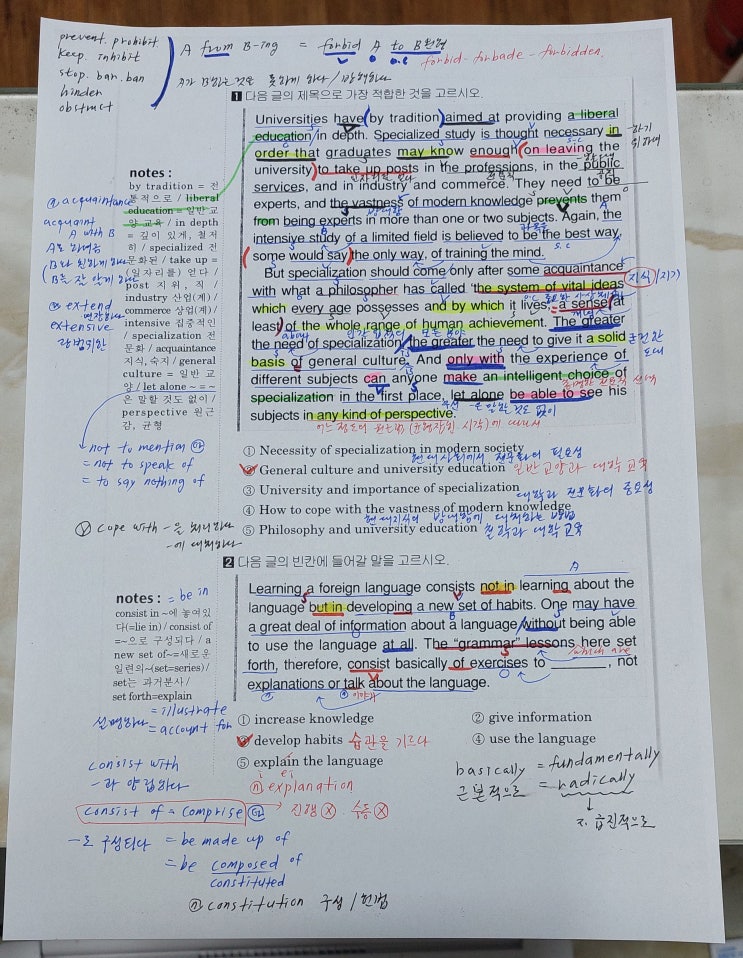 prevent. prohibit.
keep. inhibit
stop. bar. ban
hinder
obstruct
A from B-ing = forbid A to B
o.c
forbid - forbade - forbidden.
A가 B하는 것을 못하게 하다 /
1 다음 글의 제목으로 가장 적합한 것을 고르시오.
Universities have (by tradition) aimed at providing a liberal
education/in depth. Specialized study is thought necessary in
order that graduates may know enough (on leaving the
university) to take up posts in the professions, in the public
services, and in industry and commerce. They need to be
experts, and the vastness of modern knowledge prevents them
from being experts in more than one or two subjects. Again, the
intensive study of a limited field is believed to be the best way,
(some would say) the only way, of training the mind.
But specialization should come only after some acquaintance
with what a philosopher has called 'the system of vital ideas
which every age possesses and by which it lives, a sense (at
least) of the whole range of human achievement. The greater
the need of specialization, the greater the need to give it a solid
basis of general culture. And only with the experience of
different subjects can anyone make an intelligent choice of
specialization in the first place, let alone be able to see his
subjects in any kind of perspective.
notes :
by tradition = 전
통적으로 / liberal
education = 일반교
양 교육 / in depth
= 깊이 있게, 철저
히 / specialized 전
문화된 / take up =
(일자리를) 얻다 /
post 지위, 직 /
industry 산업(계) /
commerce 상업(계) /
intensive 집중적인
/ specialization 전
문화 / acquaintance
지식, 숙지 / general
culture = 일반 교
양 / let alone ~ = ~
은 말할 것도 없이 /
perspective 원근
감, 균형
ⓐ acquaintance
acquaint
A with B
ⓑ extend
extensive
광범위한
not to mention
= not to speak of
= to say nothing of
ⓥ cope with -을 처리하다
-에 대처하다
① Necessity of specialization in modern society
현대사회에서 전문화의 필요성
② General culture and university education 일반교양과 대학 교육
③ University and importance of specialization
대학과 전문화의 중요성
④ How to cope with the vastness of modern knowledge
현대지식의 방대함에 대처하는 방법
⑤ Philosophy and university education 철학과 대학 교육
2 다음 글의 빈칸에 들어갈 말을 고르시오.
Learning a foreign language consists not in learning about the
language but in developing a new set of habits. One may have
a great deal of information about a language/without being able
to use the language at all. The "grammar" lessons here set
which are
forth, therefore, consist basically of exercises to ________, not
explanations or talk about the language.
notes : = be in
consist in ~에 놓여있
다(=lie in) / consist of
=~으로 구성되다 / a
new set of~=새로운
일련의~(set=series) /
set는 과거분사 /
set forth=explain
= illustrate
설명하다 = account for
① increase knowledge
② give information
③ develop habits 습관을 기르다
④ use the language
⑤ explain the language
ⓝ explanation
basically = fundamentally
근본적으로 = radically
급진적으로
consist with
-과 양립하다
consist of = comprise → 진행 ⓧ 수동 ⓧ
-로 구성되다 = be made up of
= be composed of
constituted
ⓝ constitution 구성 / 헌법